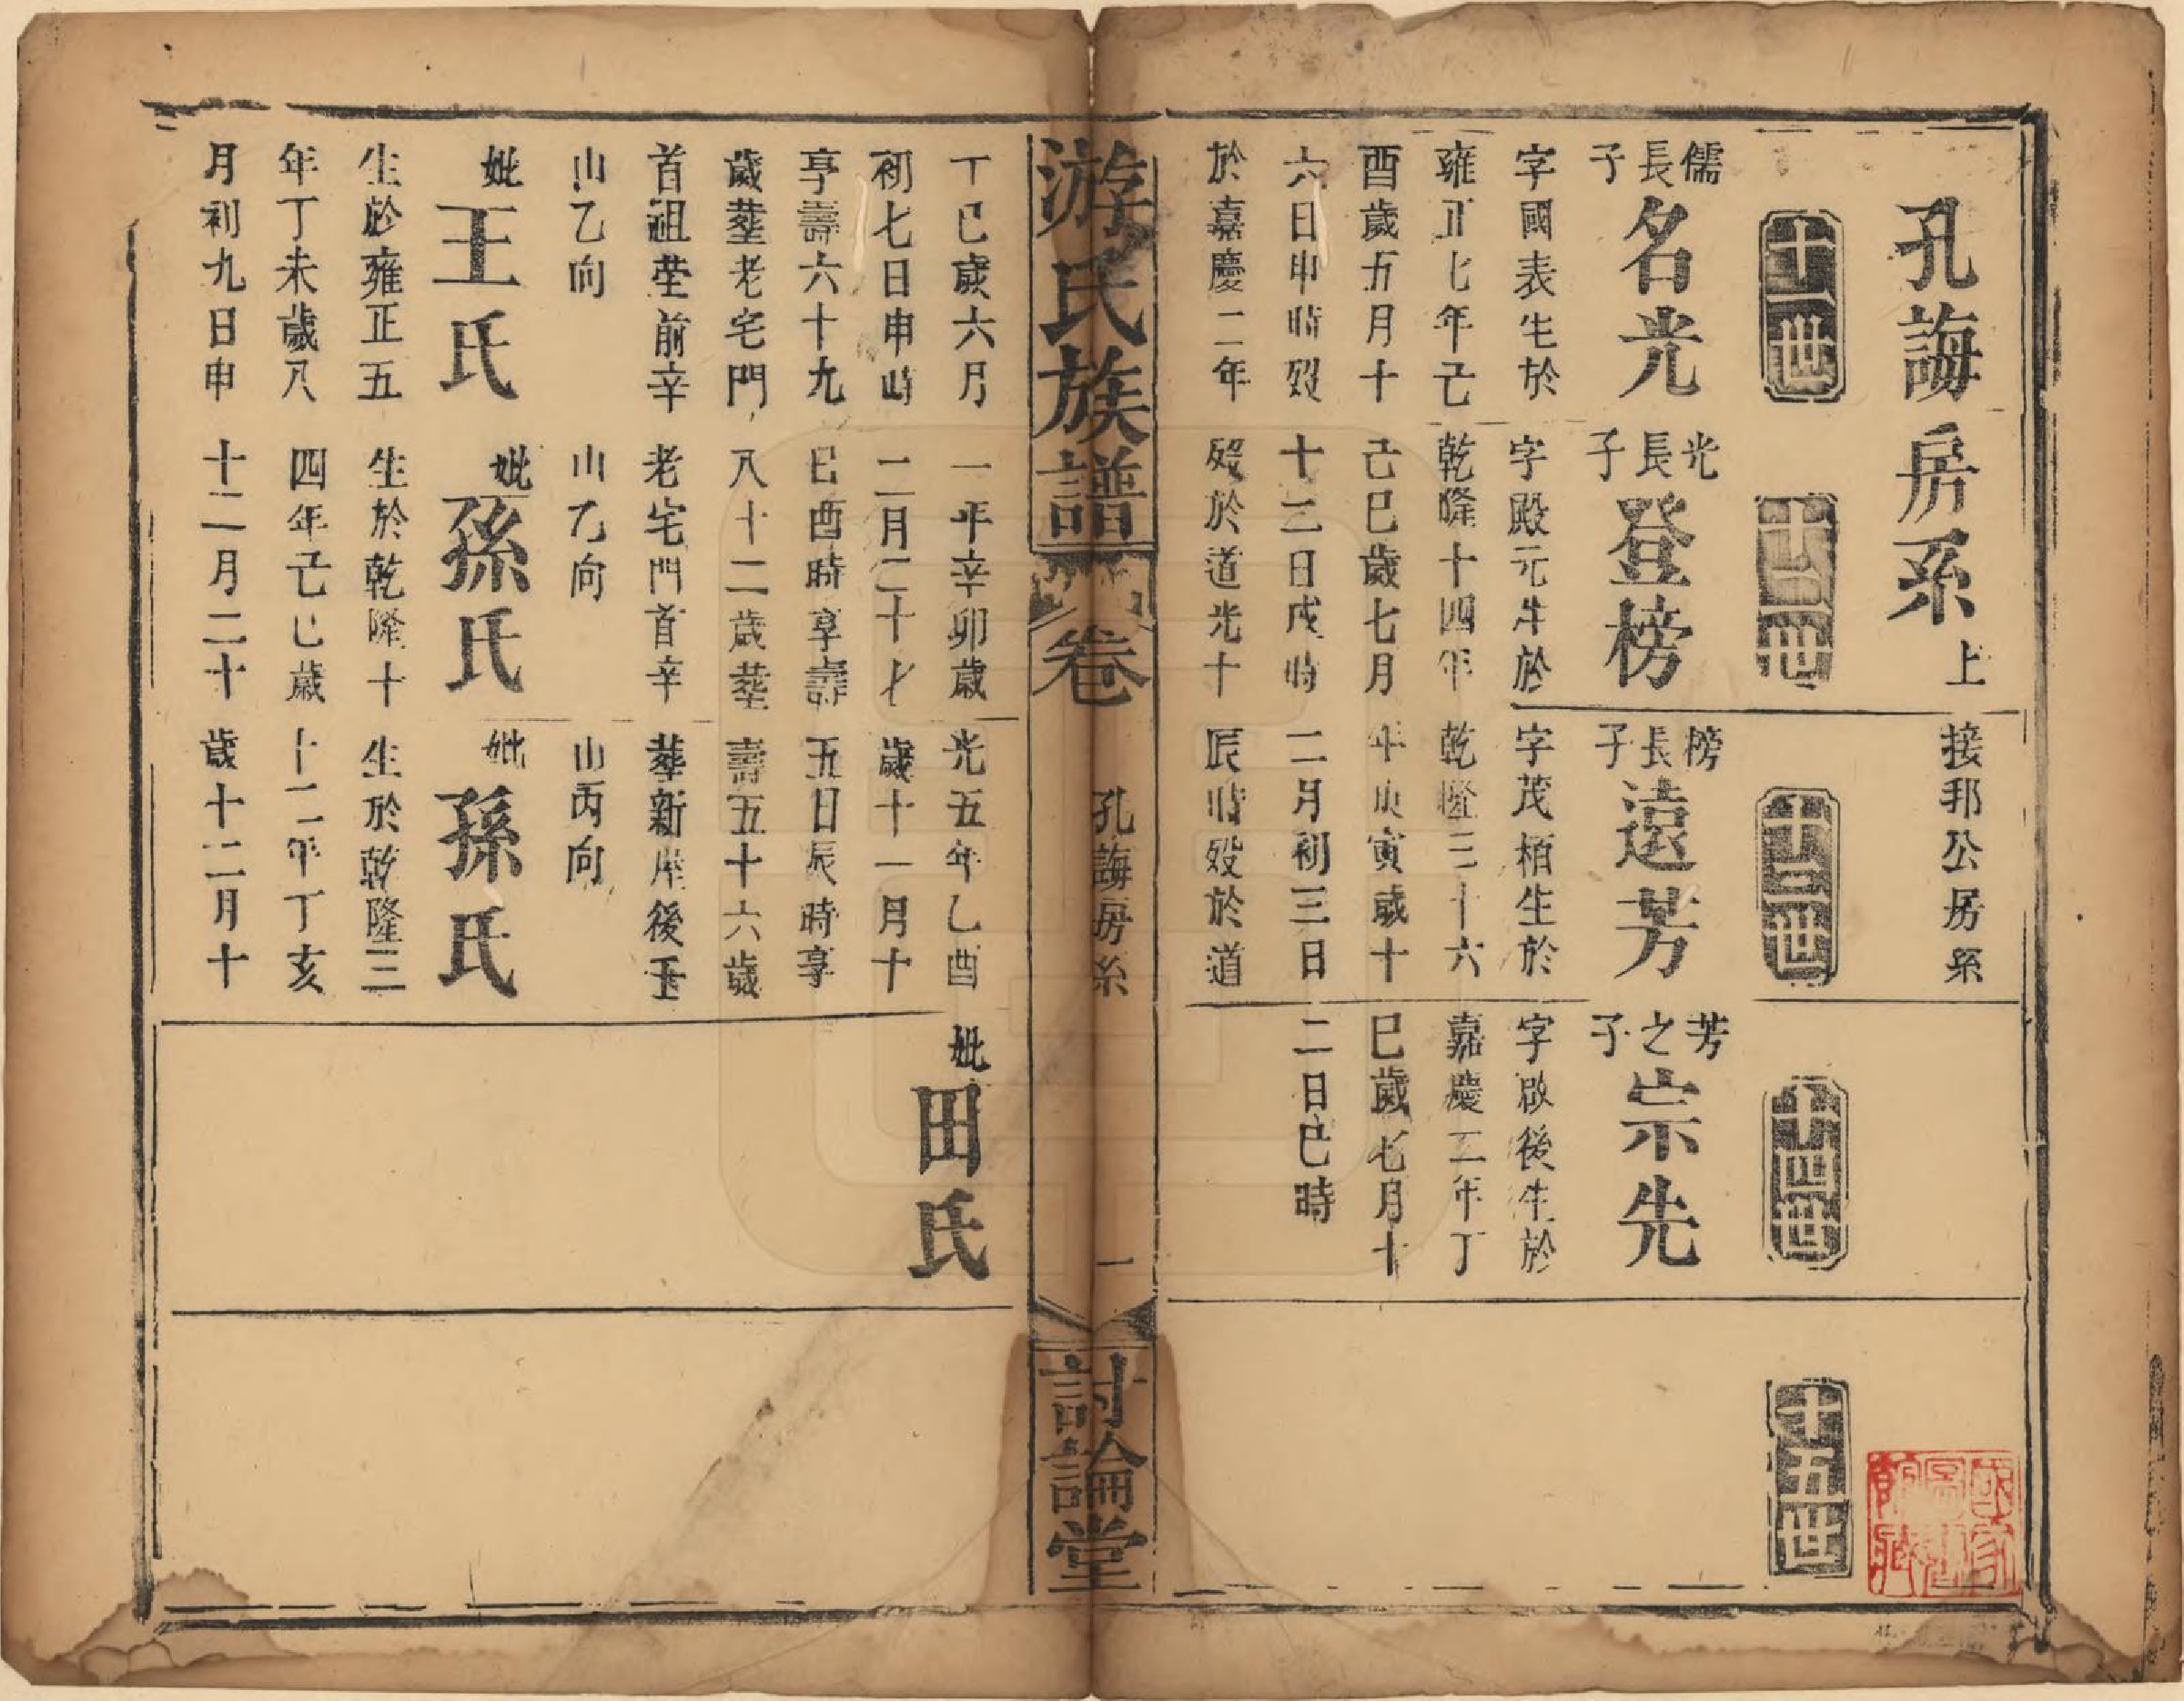 孔誨房系上
接邦公房系
十一世
儒長子
名光
字國表生於
雍正七年己
酉歲五月十
六日申時殁
於嘉慶二年
丁巳歲六月
初七日申時
享壽六十九
歲塟老宅門
首祖塋前辛
山乙向
妣
王氏
生於雍正五
年丁未歲八
月初九日申
十二世
光長子
登榜
字殿元生於
乾隆十四年
己巳歲七月
十三日戌時
殁於道光十
一年辛卯歲
二月二十七
日酉時享壽
八十二歲塟
老宅門首辛
山乙向
妣
孫氏
生於乾隆十
四年己巳歲
十二月二十
十三世
榜長子
遠芳
字茂栢生於
乾隆三十六
年庚寅歲十
二月初三日
辰時殁於道
光五年乙酉
歲十一月十
五日辰時享
壽五十六歲
塟新屋後壬
山丙向
妣
孫氏
生於乾隆三
十二年丁亥
歲十二月十
十四世
芳之子
宗先
字啟後生於
嘉慶二年丁
巳歲七月十
二日巳時
妣
田氏
十五世
游氏族譜
卷
孔誨房系
一
討論堂
國家圖書館藏